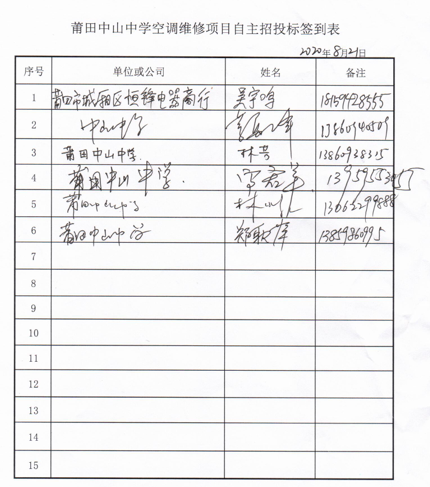 莆田中山中学空调维修项目自主招投标签到表
2020年8月21日
序号 单位或公司 姓名 备注
1 莆田市城厢区恒锋电器商行 吴宇鸣 18159428555
2 中山中学
3 莆田中山中学 林芳 13860938315
4 莆田中山中学
5 莆田中山中学 林 13063299888
6 莆田中山中学 13859860995
7
8
9
10
11
12
13
14
15